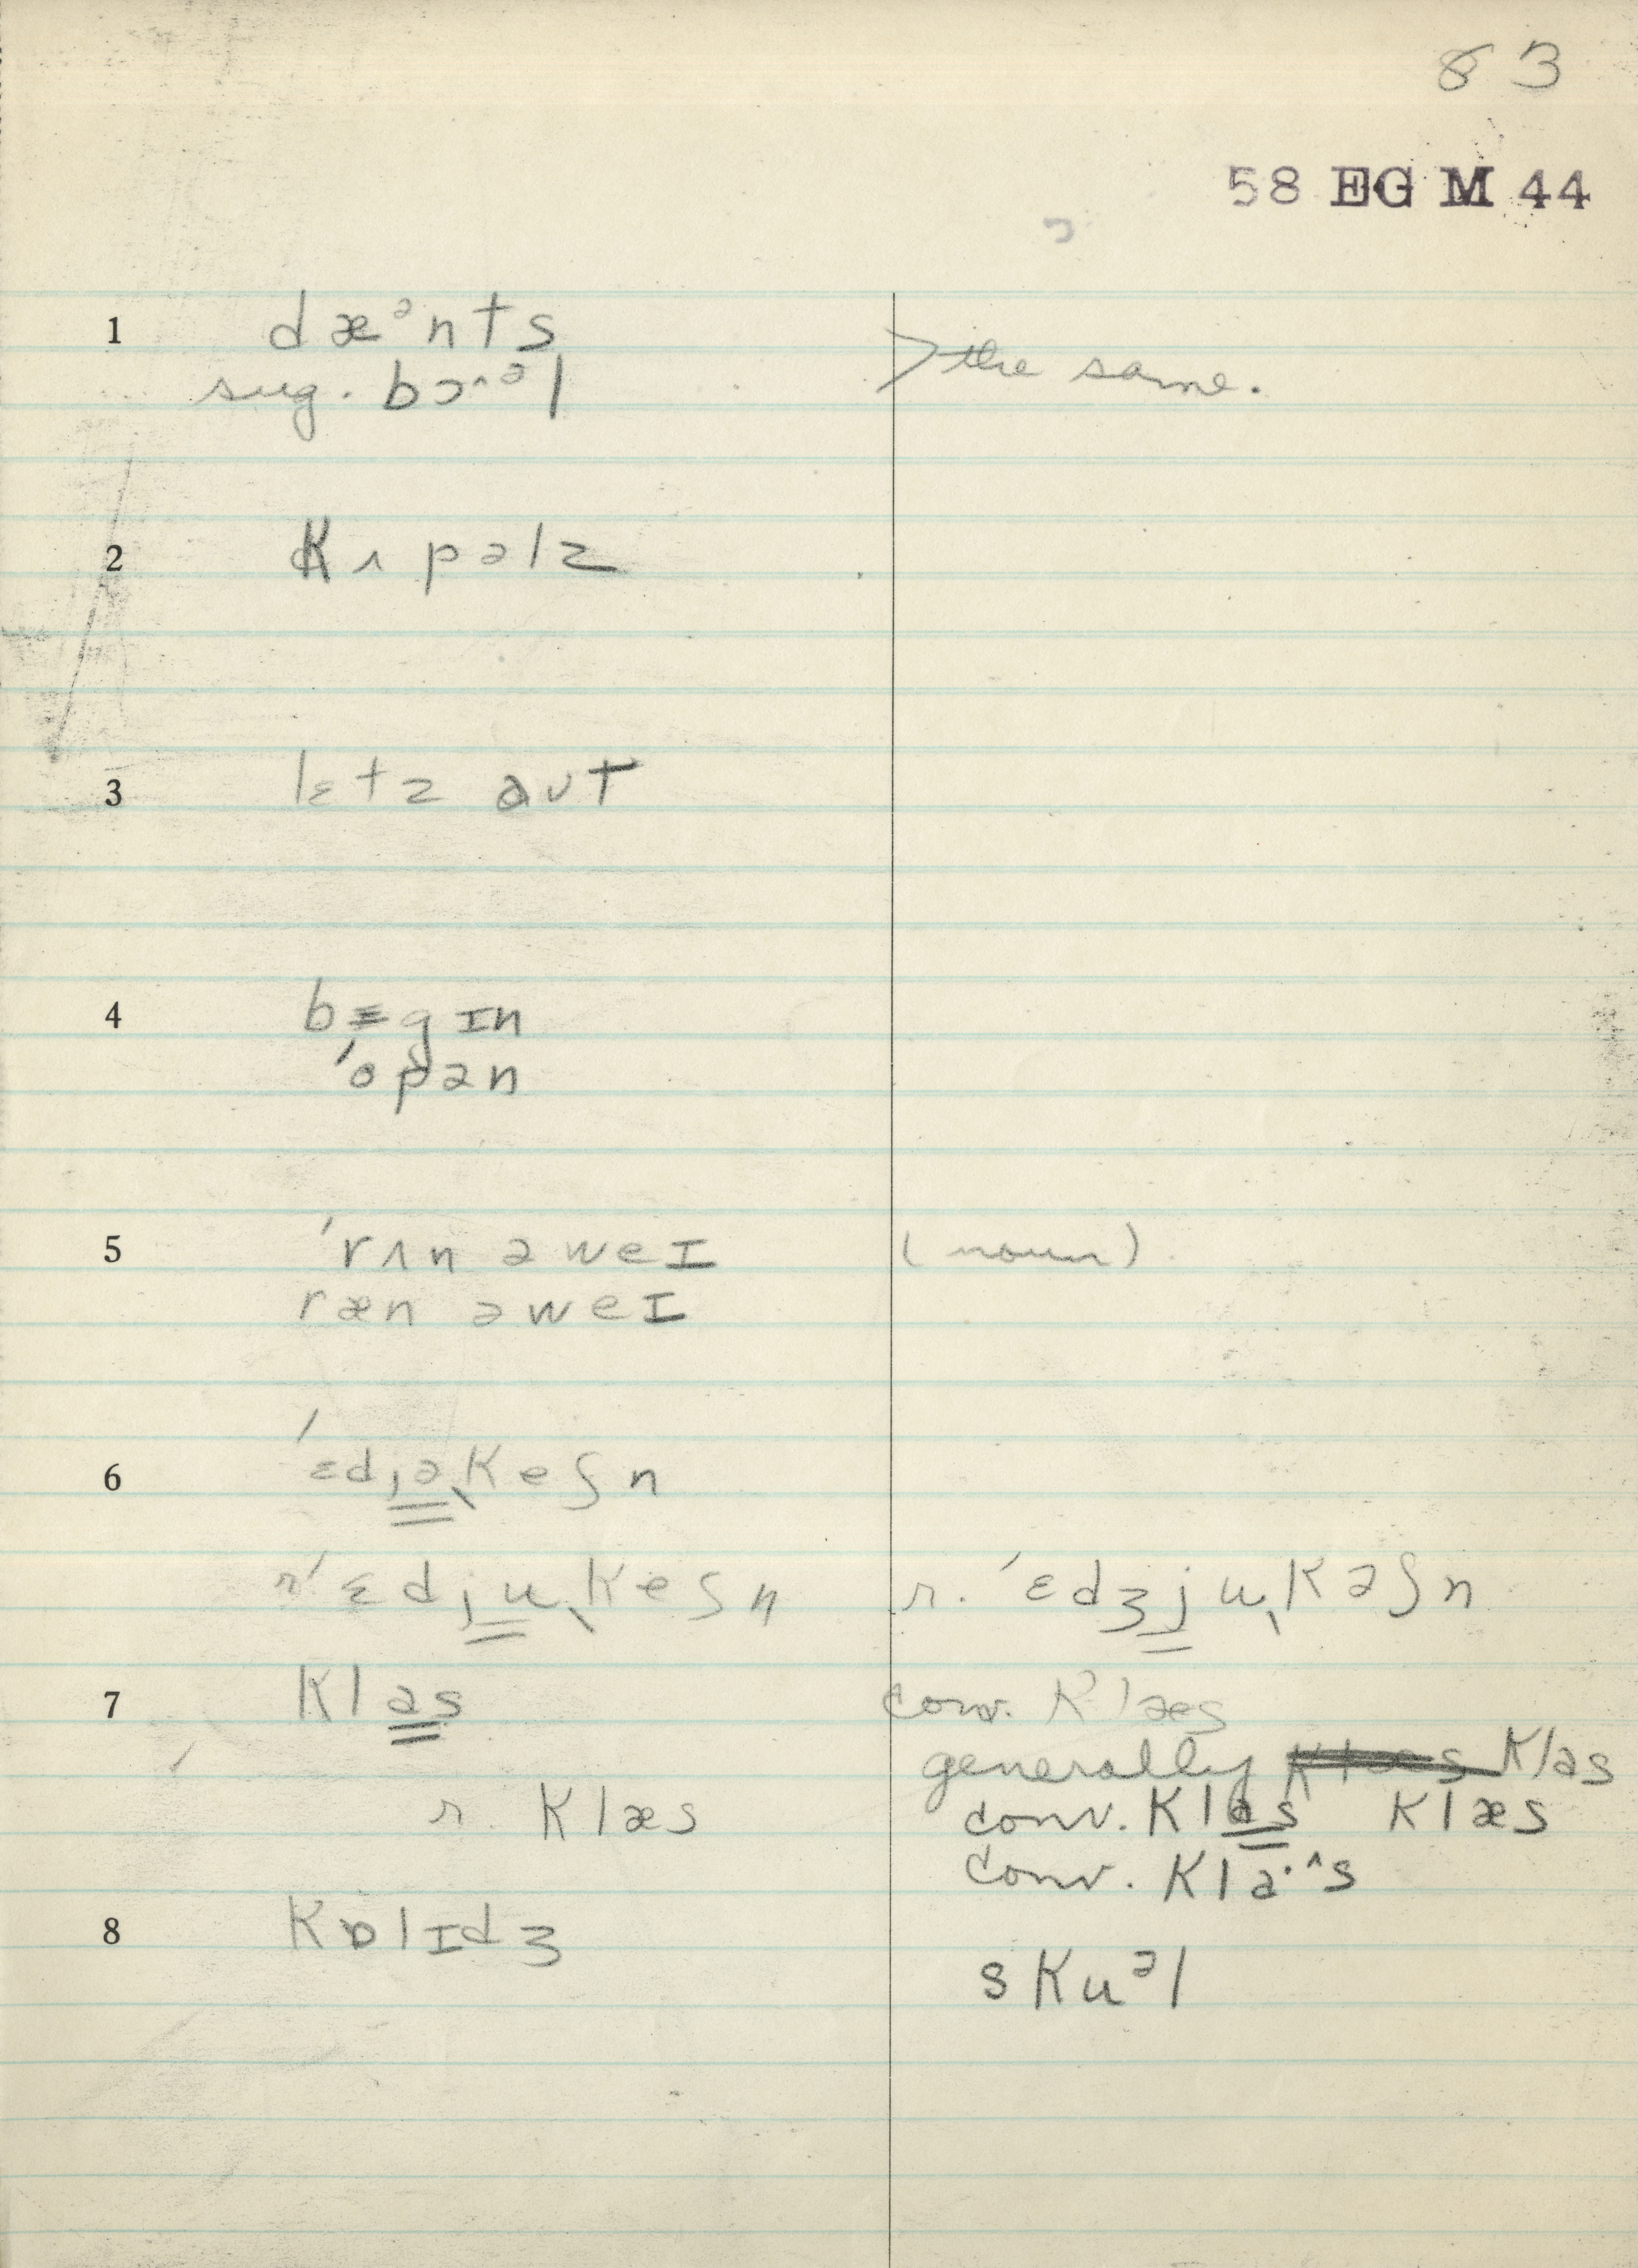 83
58 EG M 44
1 dæᵊnts
sug. bɔ˄ᵊl
> the same.
2 kʌpəlz
3 lɛtz aʊt
4 bɛgɪn
ˈopən
5 ˈrʌn əweɪ (noun)
ræn əweɪ
6 ˈɛdjəˌkeʃn
r ˈɛdjuˌkeʃn r. ˈɛdʒjuˌkəʃn
7 klas conv. klæs
generally klas
r. klæs conv. klas klæs
conv. kla·˄s
8 kɒlɪdʒ
skuᵊl